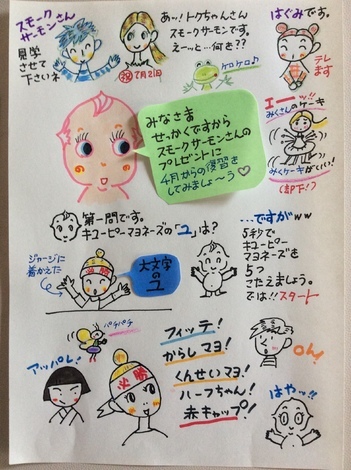 スモーク
サーモンさん
見学
させて
下さいネ
あッ!トクちゃんさん
スモークサーモンです。
えーッと…何き??
祝7月2日
ケロケロ♪
はぐみです。
テレ
ます
エーッ!!
みくさんのケーキ
みくケーキがいい!
(却下!)
みなさま
せっかくですから
スモークサーモンさんの
プレゼントに
4月からの復習を
してみましょ〜う♡
第一問です。
キューピーマヨネーズの「ユ」は?
ジョージに
着がえた
必勝
大文字
のユ
…ですがww
5秒で
キューピー
マヨネーズを
5つ
こたえましょう。
では!!スタート
パチパチ
アッパレ!
必勝
フィッテ!
からしマヨ!
くんせいマヨ!
ハーフちゃん!
赤キャップ!
On!
はやッ!!